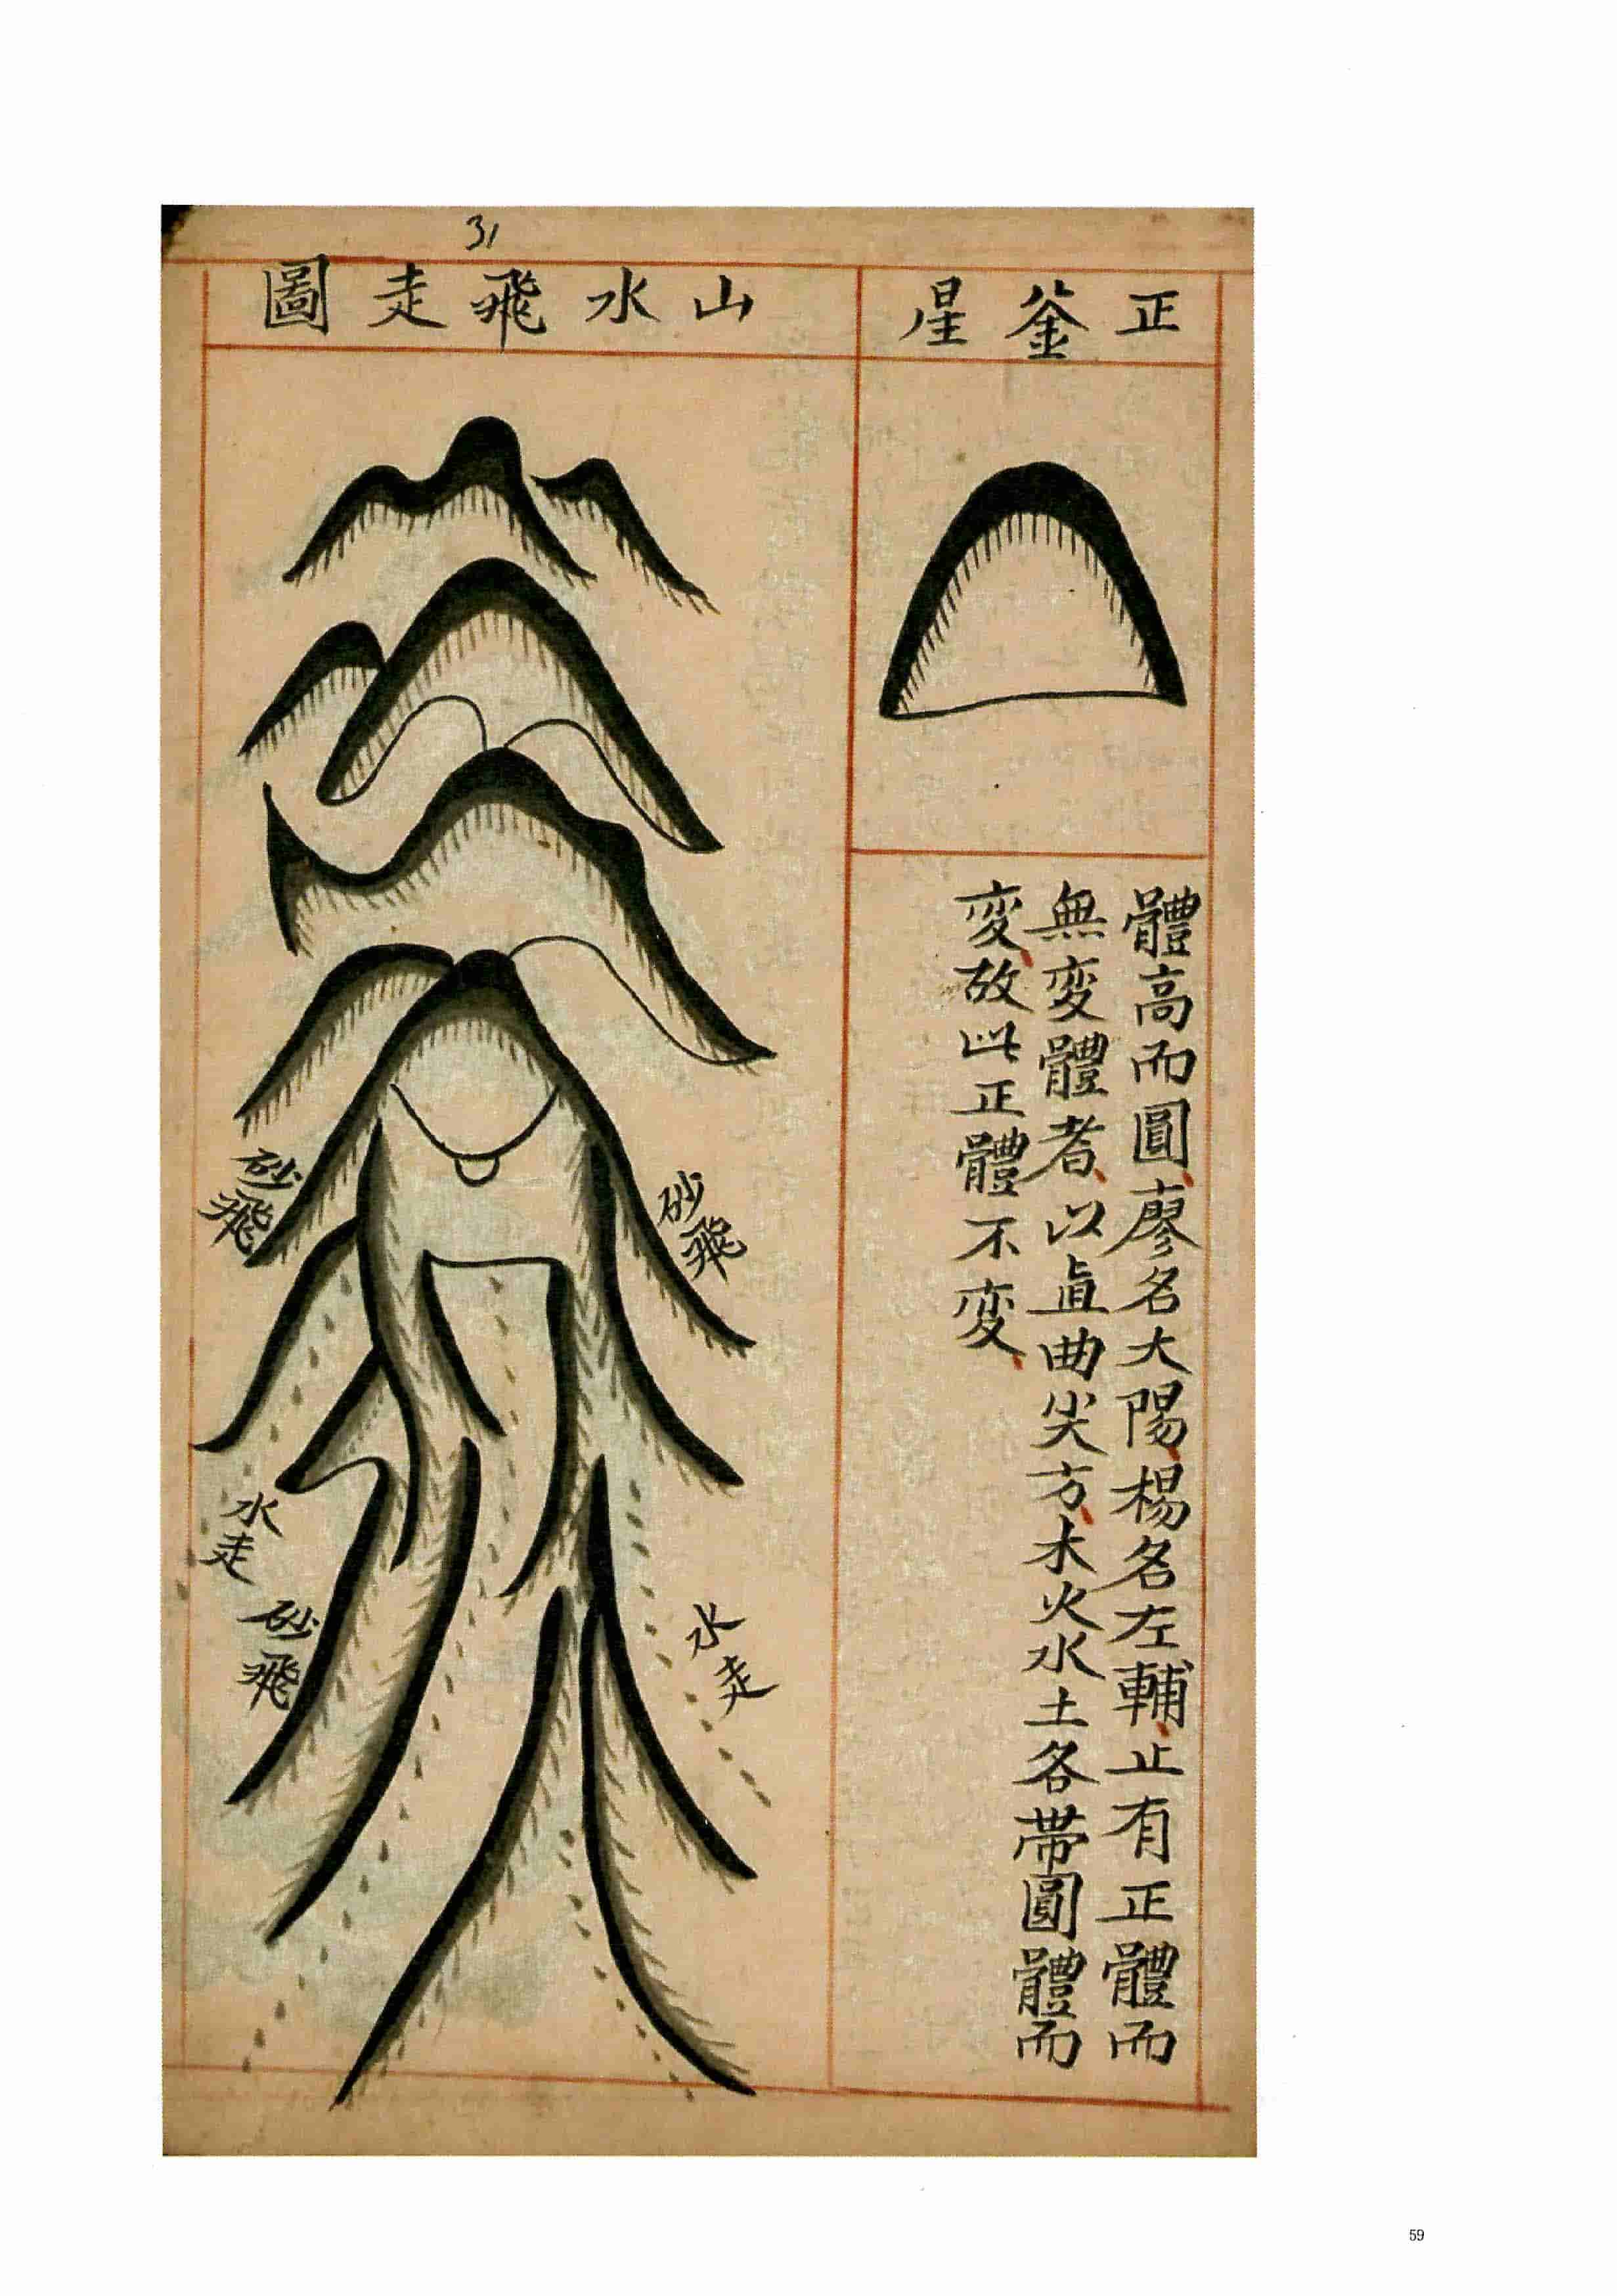 31
正釜星
體高而圓廖名大陽楊名左輔止有正體而
無変體者以直曲尖方木火水土各帯圓體而
変故此正體不変
山水飛走圖
砂飛
砂飛
水走
水走
砂飛
59